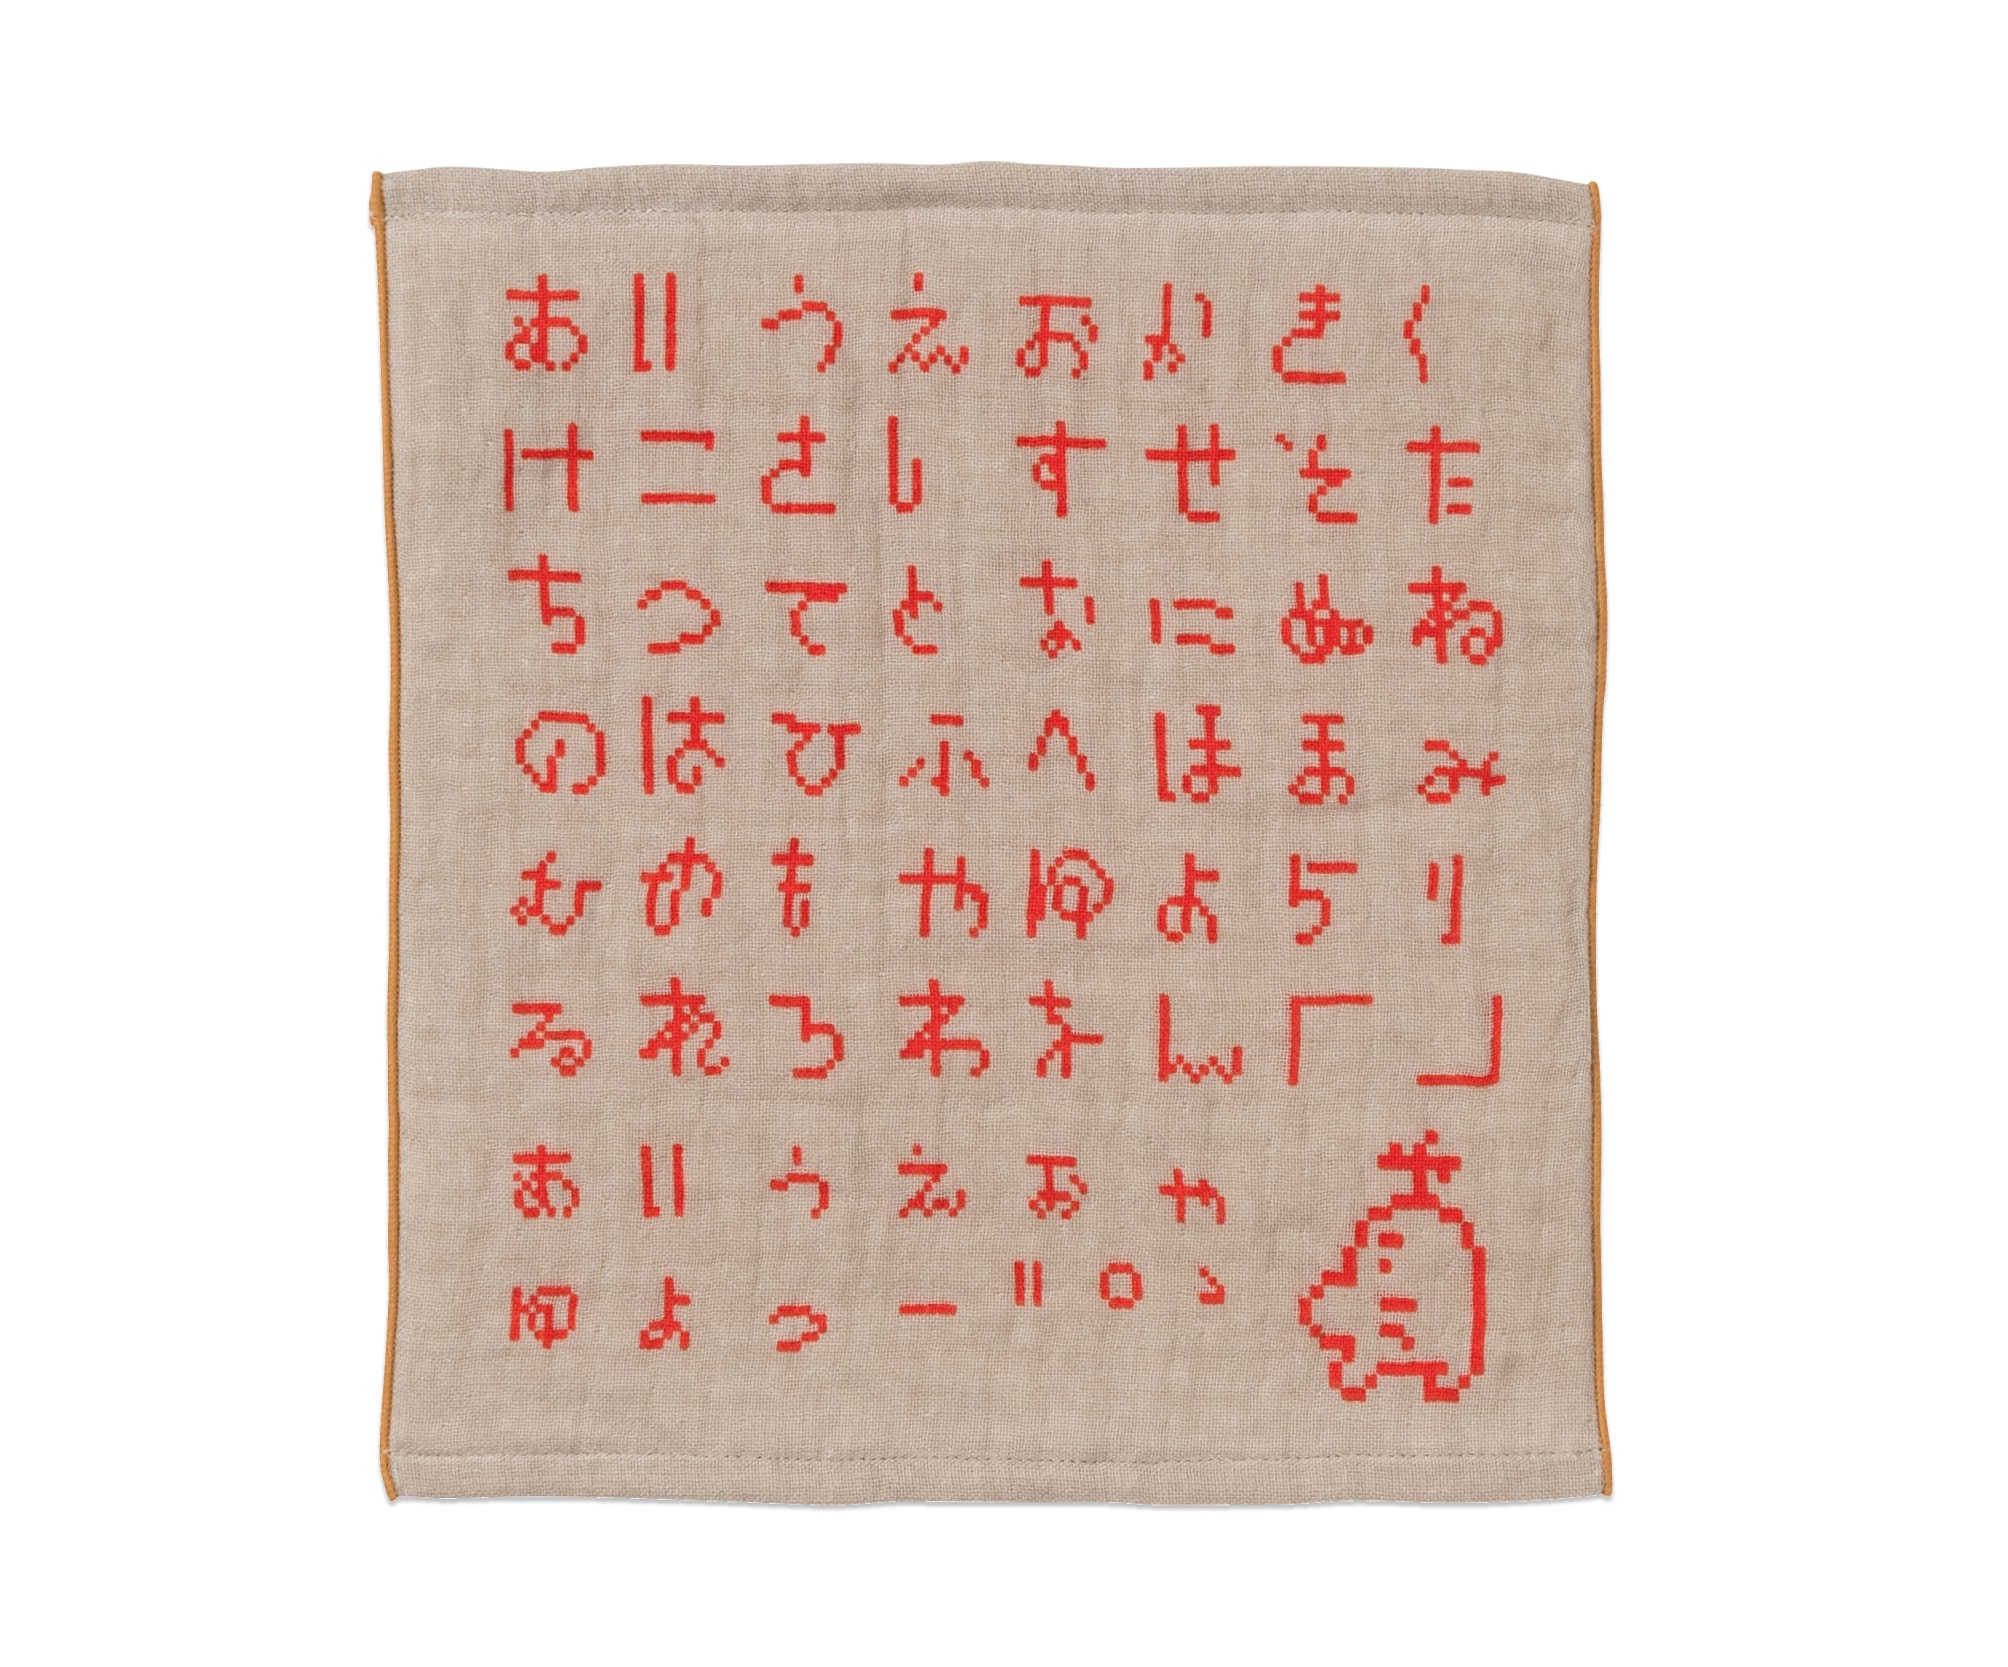 あいうえおかきく
けこさしすせそた
ちつてとなにぬね
のはひふへほまみ
むめもやゆよらり
るれろわをん「」
ぁぃぅぇぉゃ
ゅょっー゛゜、